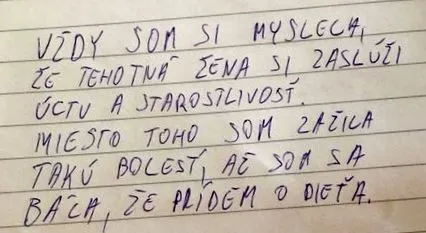 VŽDY SOM SI MYSLELA,
ŽE TEHOTNÁ ŽENA SI ZASLÚŽI
ÚCTU A STAROSTLIVOSŤ.
MIESTO TOHO SOM ZAŽILA
TAKÚ BOLESŤ, AŽ SOM SA
BÁLA, ŽE PRÍDEM O DIEŤA.